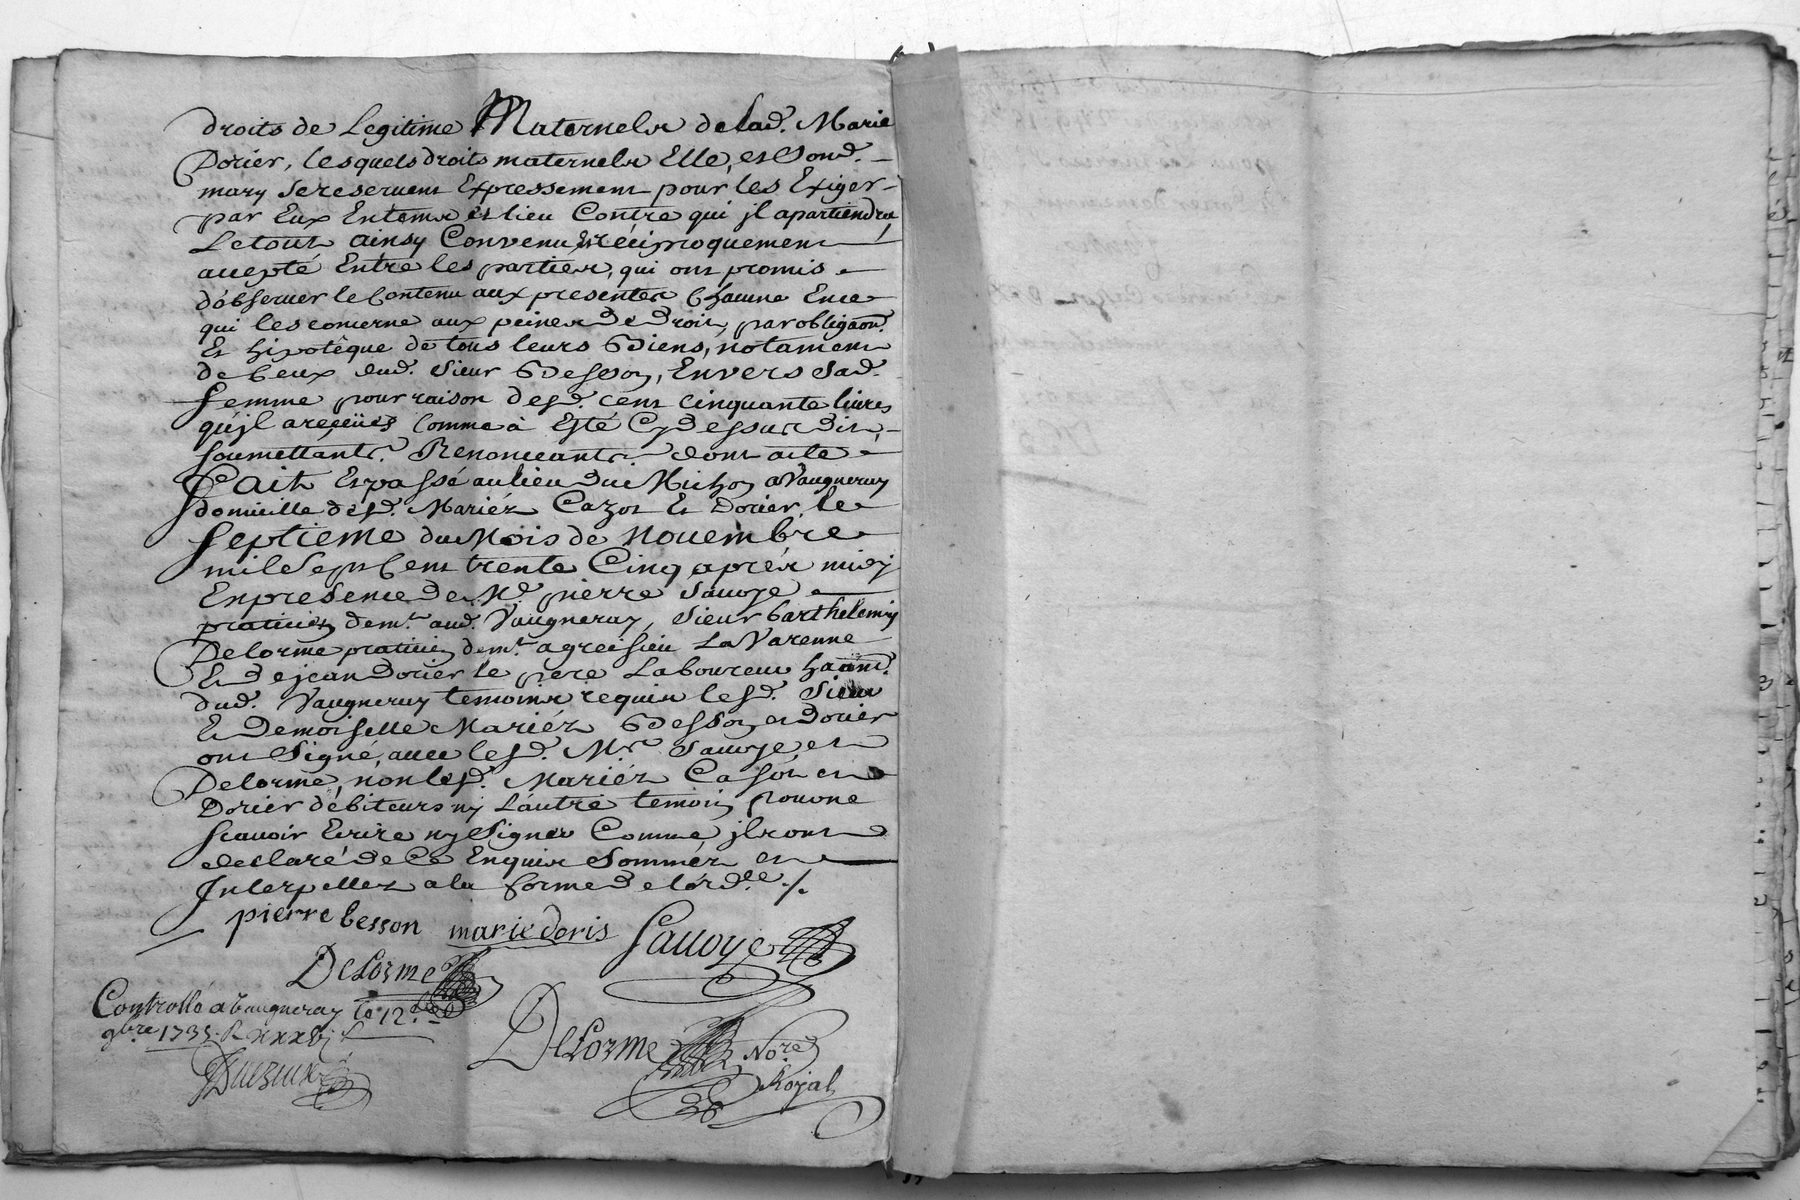 droits de Legitime Maternels de lad. Marie
Dorier, lesquels droits maternels Elle, et Sond.
mary se reservent Expressement pour les Exiger
par Eux En tems et lieu Contre qui jl apartiendra,
Le tout ainsy Convenu et réciproquement
accepté Entre les parties, qui ont promis
d'observer le Contenu aux presentes Chacune En ce
qui les concerne aux peines de Droit, par obligaon.
Et hipotêque de tous leurs Biens, notament
de Ceux dud. Sieur Besson, Envers Sad.
femme pour raison desd. cent cinquante livres
qu'jl a reçeües Comme à Esté Cydessus dit,
soumettants. Renonceants. dont acte
Fait Et passé au lieu du Michon a Vaugneray
domicille desd. Mariéz Cazot Et Dorier, le
septieme du Mois de Novembre
mil Sept Cent trente Cinq aprés midy
En presence de Me. pierre Sauvoye
praticien demt. aud. Vaugneray, Sieur barthelemy
Delorme praticien demt. a greisieu La Varenne
Et de jean Dorier le pere Laboureur haant.
dud. Vaugneray temoins requis lesd. Sieur
Et Demoiselle Mariéz Besson et Dorier
ont Signé, avec lesd. Mrs. Sauvoye et
Delorme, non lesd. Mariéz Casót et
Dorier débiteurs ny L'autre temoin pour ne
scavoir Ecrire ny Signer Comme, jls ont
declaré de Ce Enquis Sommez et
Interpellez a la forme de l'ordce ./.
pierre besson marie doris Sauvoye
DeLorme
Controllé a Vaugneray le 12e.
9bre 1735. R
DeLorme Nore
Royal